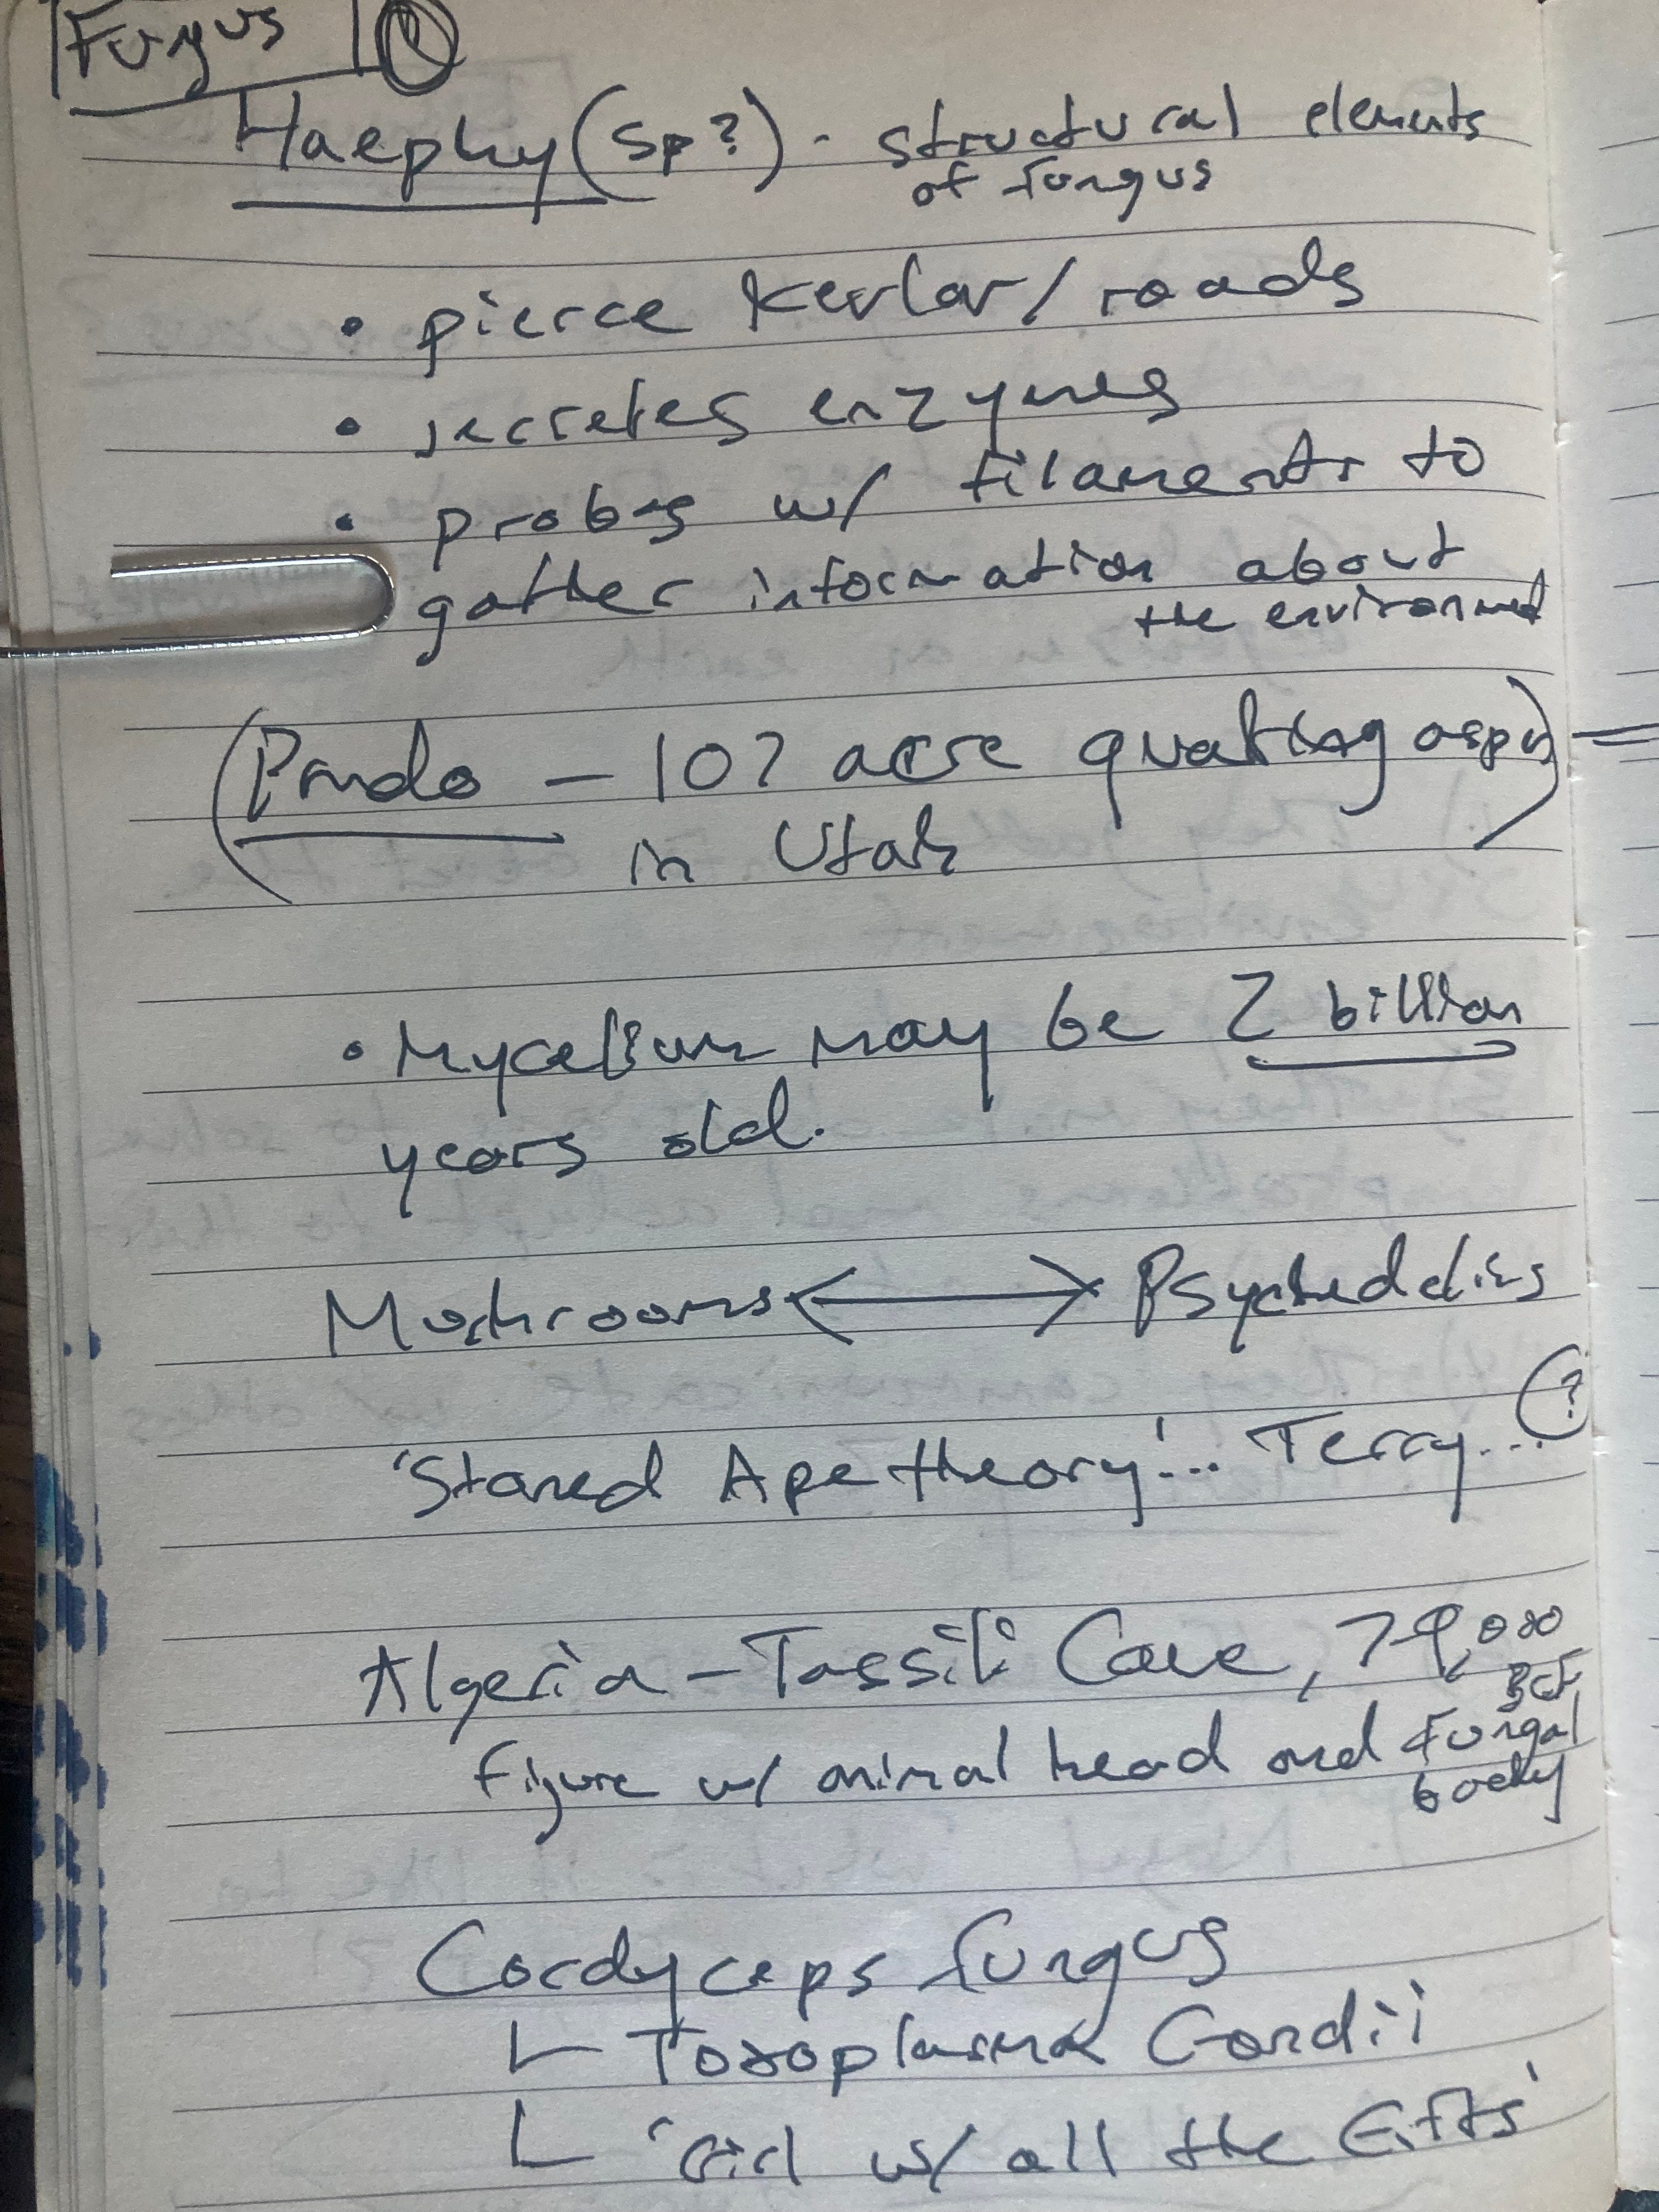 Fungus
Haephy (sp?) - structural elements
of fungus
• pierce Kevlar / roads
• secretes enzymes
• probes w/ filaments to
gather information about
the environment
(Pando - 107 acre quaking aspen)
in Utah
• Mycelium may be 2 billion
years old.
Mushrooms <-> Psychedelics
'Stoned Ape theory'... Terry... (?)
Algeria - Tassili Cave, 7-9,000
BCE
figure w/ animal head and fungal
body
Cordyceps fungus
Toxoplasma Gondii
'Girl w/ all the Gifts'